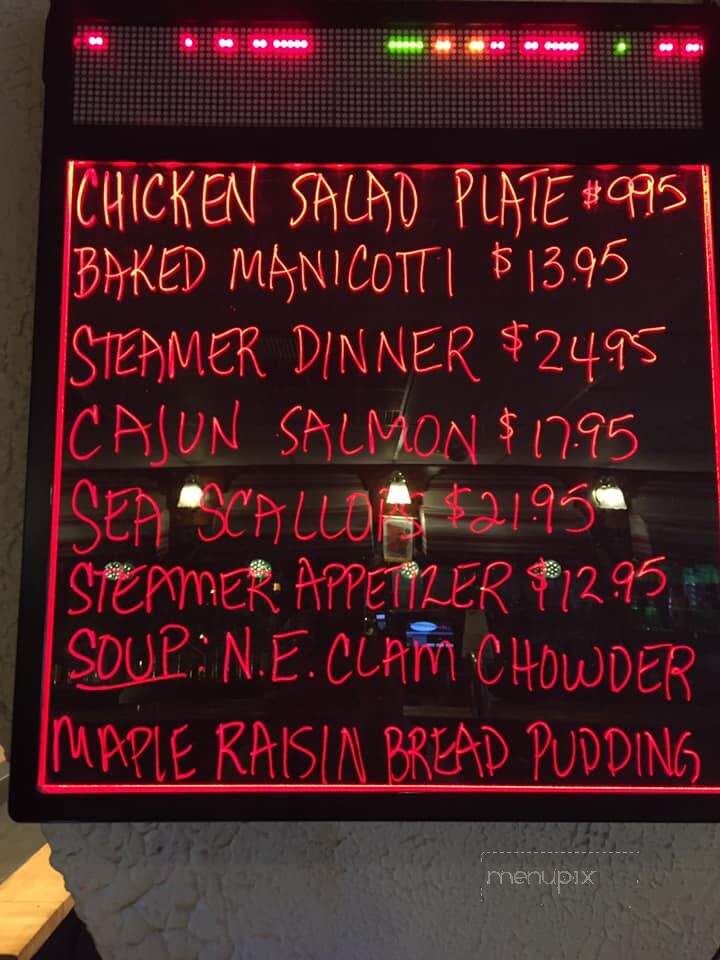 CHICKEN SALAD PLATE $9.95
BAKED MANICOTTI $13.95
STEAMER DINNER $24.95
CAJUN SALMON $17.95
SEA SCALLOPS $21.95
STEAMER APPETIZER $12.95
SOUP: N.E. CLAM CHOWDER
MAPLE RAISIN BREAD PUDDING
menupix